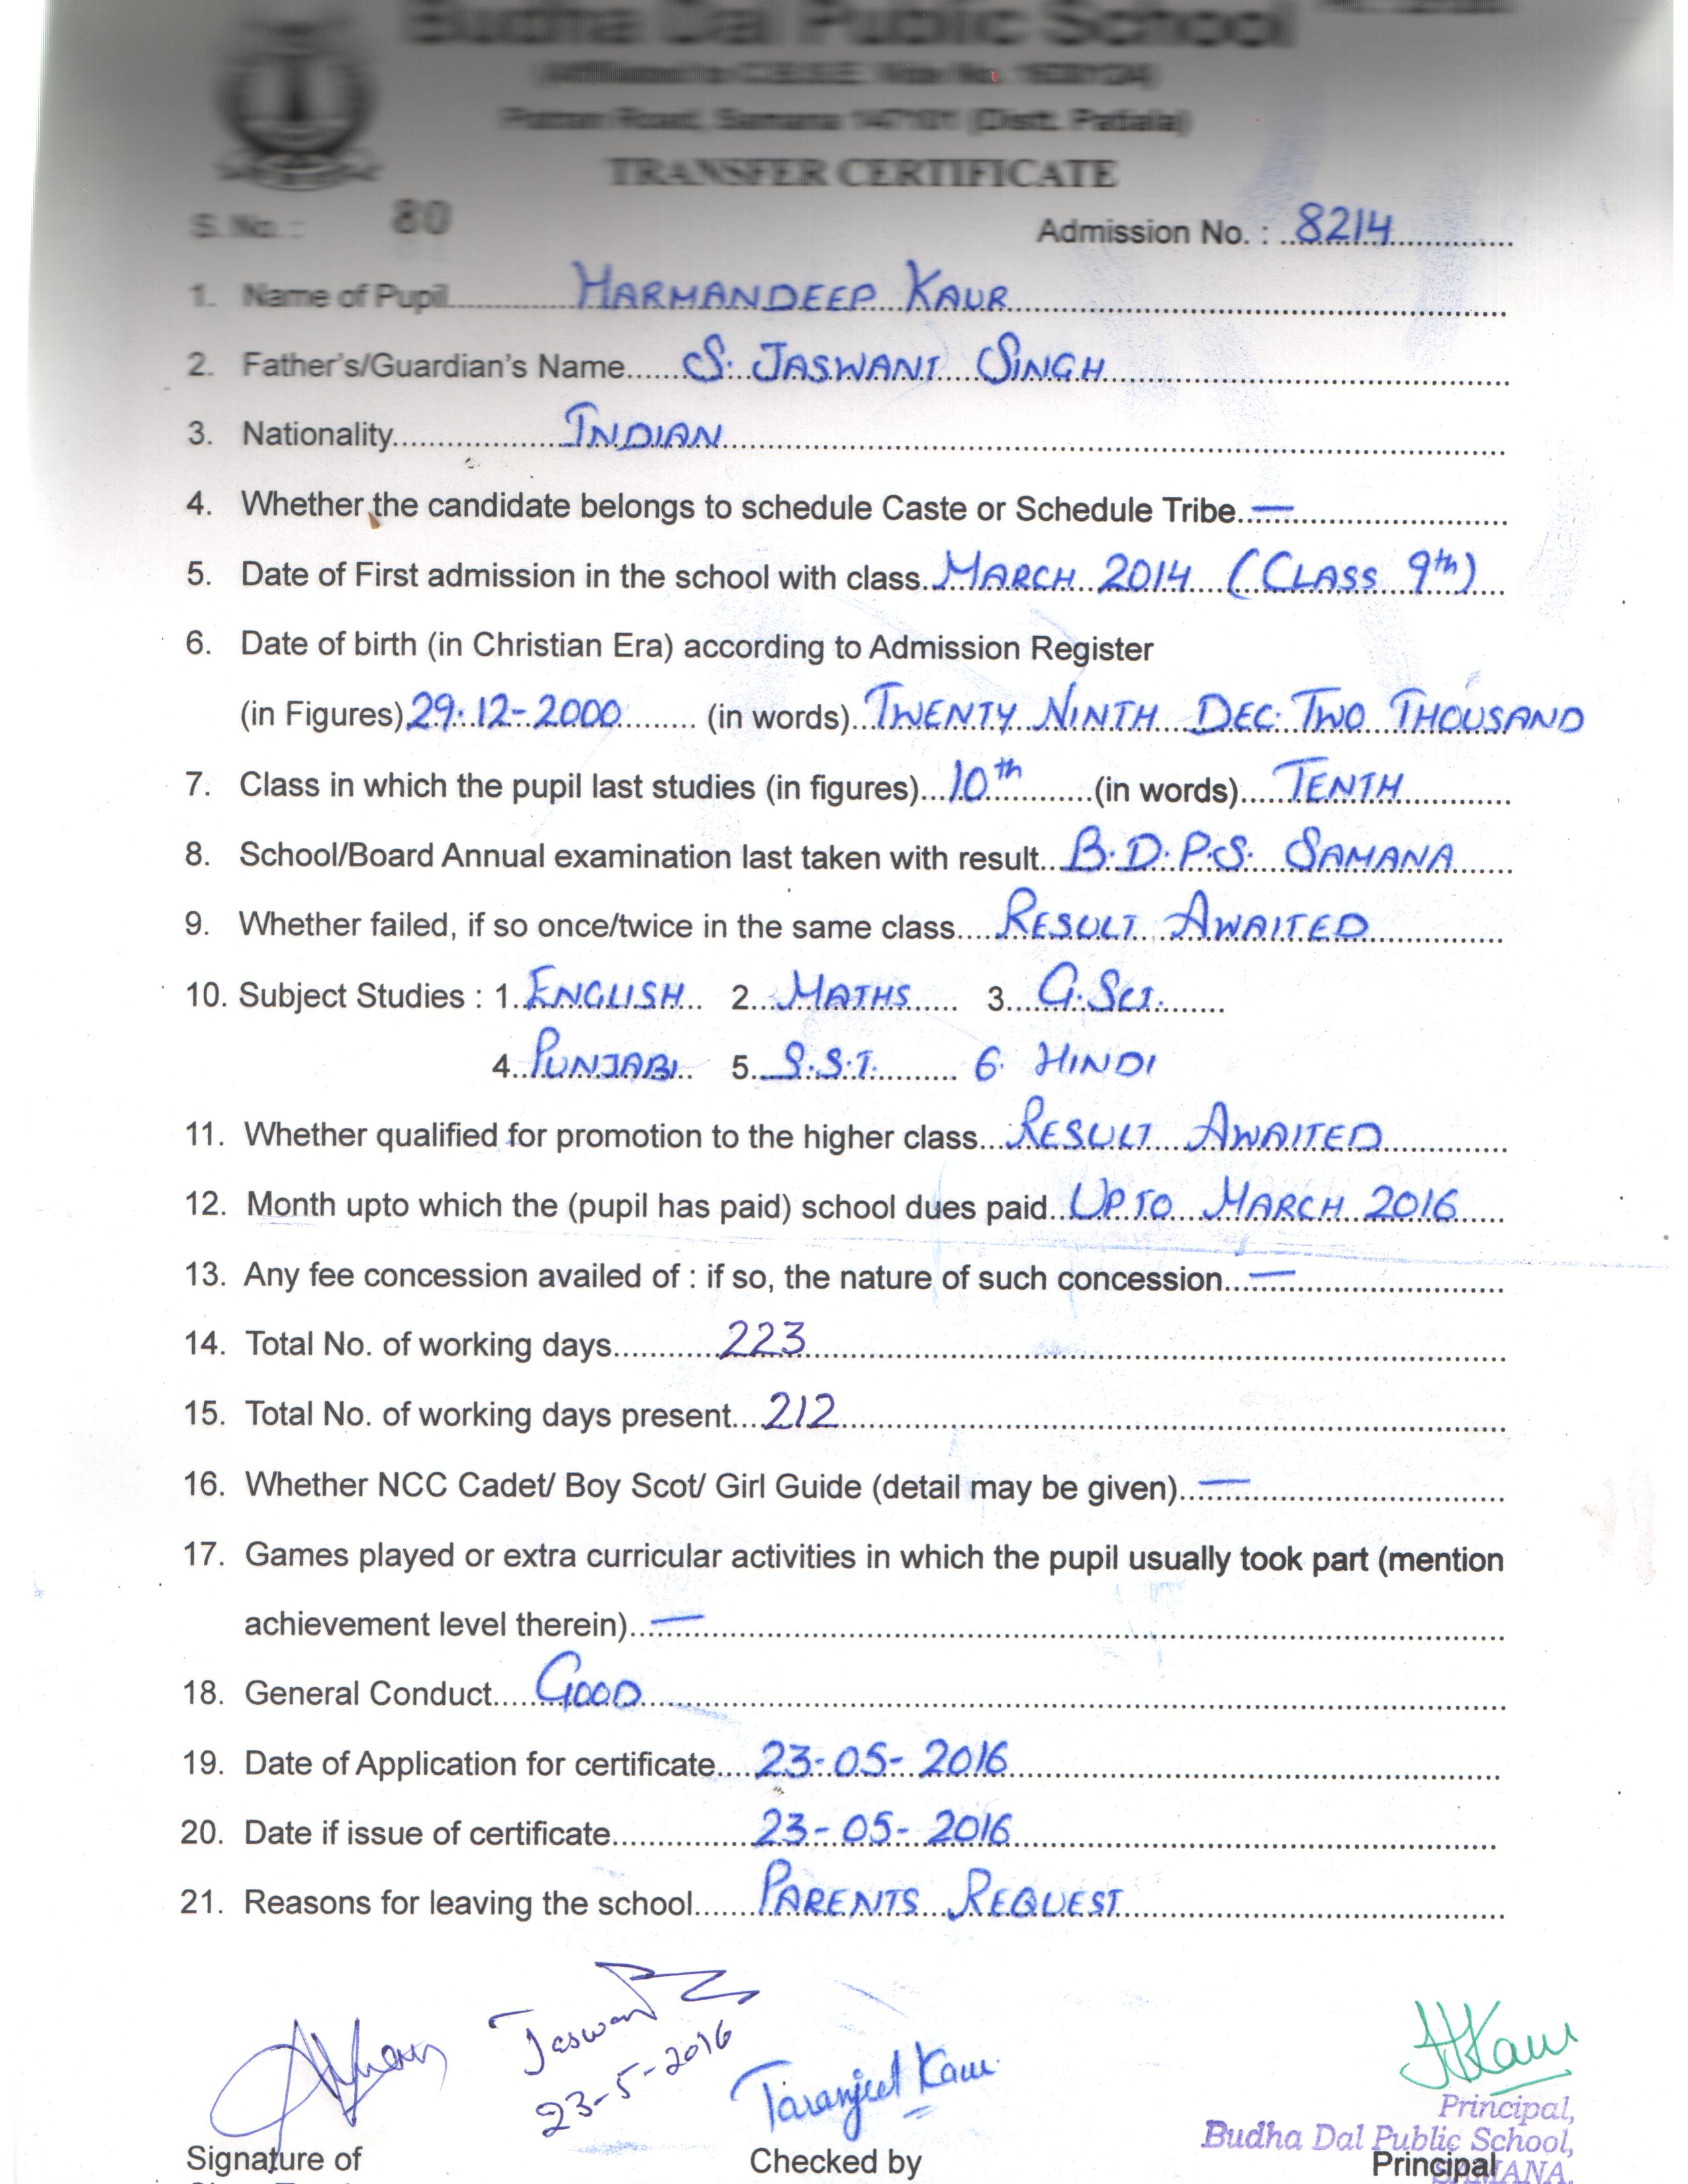 Budha Dal Public School
Patran Road, Samana 147101 (Distt. Patiala)
TRANSFER CERTIFICATE
S. No. : 80 Admission No. : 8214
1. Name of Pupil HARMANDEEP KAUR
2. Father's/Guardian's Name S. JASWANT SINGH
3. Nationality INDIAN
4. Whether the candidate belongs to schedule Caste or Schedule Tribe —
5. Date of First admission in the school with class MARCH 2014 (CLASS 9th)
6. Date of birth (in Christian Era) according to Admission Register
(in Figures) 29-12-2000 (in words) TWENTY NINTH DEC. TWO THOUSAND
7. Class in which the pupil last studies (in figures) 10th (in words) TENTH
8. School/Board Annual examination last taken with result B.D.P.S. SAMANA
9. Whether failed, if so once/twice in the same class RESULT AWAITED
10. Subject Studies : 1. ENGLISH 2. MATHS 3. G.SCI.
4. PUNJABI 5. S.S.T. 6. HINDI
11. Whether qualified for promotion to the higher class RESULT AWAITED
12. Month upto which the (pupil has paid) school dues paid UPTO MARCH 2016
13. Any fee concession availed of : if so, the nature of such concession —
14. Total No. of working days 223
15. Total No. of working days present 212
16. Whether NCC Cadet/ Boy Scot/ Girl Guide (detail may be given) —
17. Games played or extra curricular activities in which the pupil usually took part (mention
achievement level therein) —
18. General Conduct GOOD
19. Date of Application for certificate 23-05-2016
20. Date if issue of certificate 23-05-2016
21. Reasons for leaving the school PARENTS REQUEST
23-5-2016
Taranjeet Kaur
Principal,
Budha Dal Public School,
SAMANA.
Signature of Checked by Principal